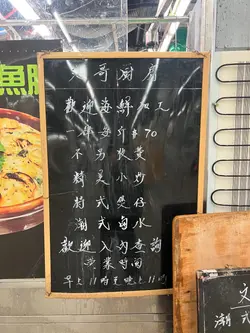 文哥厨房
歡迎海鮮加工
一律每斤$70
不另收費
精美小炒
特式煲仔
潮式卤水
歡迎入內查詢
营業時间
早上11時至晚上11時
魚腸
文
潮式